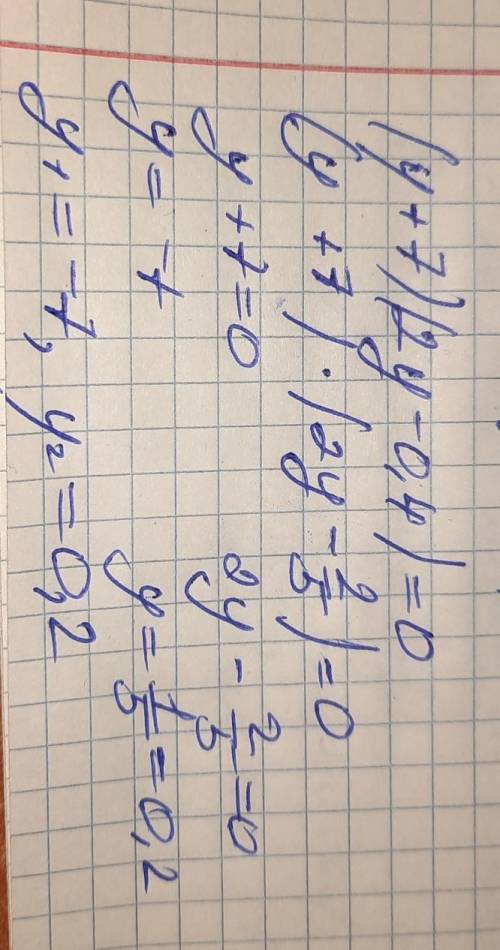 (y + 7)(2y - 0,4) = 0
(y + 7) · (2y - 2/5) = 0
y + 7 = 0 2y - 2/5 = 0
y = -7 y = 1/5 = 0,2
y₁ = -7, y₂ = 0,2